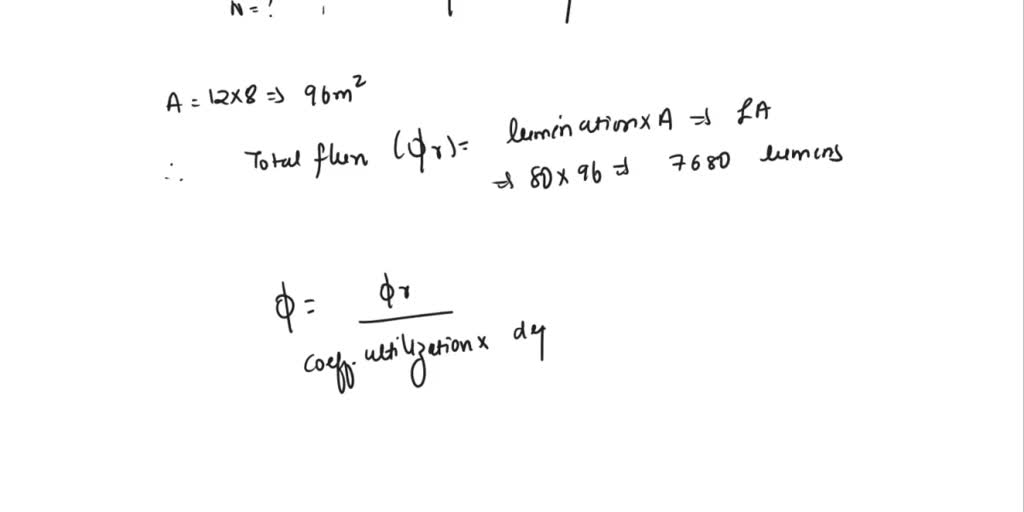 N = ?
A = 12×8 ⇒ 96m²
∴ Total flux (ϕr) = lumination × A ⇒ LA
⇒ 80 × 96 ⇒ 7680 lumens
ϕ = ϕr
coeff. ultilization × de